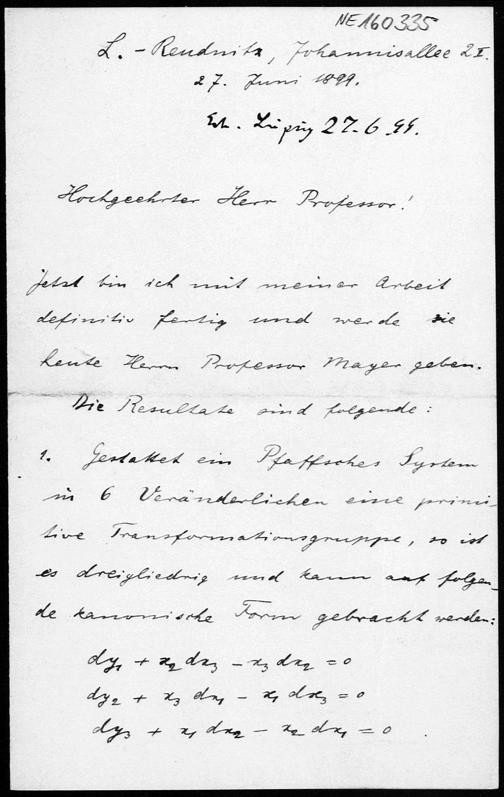 NE160335
L. - Reudnitz, Johannisallee 2 I.
27. Juni 1899.
Erh. Leipzig 27.6.99.
Hochgeehrter Herr Professor!
Jetzt bin ich mit meiner Arbeit
definitiv fertig und werde sie
heute Herrn Professor Mayer geben.
Die Resultate sind folgende:
1. Gestattet ein Pfaffsches System
in 6 Veränderlichen eine primi-
tive Transformationsgruppe, so ist
es dreigliedrig und kann auf folgen-
de kanonische Form gebracht werden:
dy₁ + x₂ dx₃ − x₃ dx₂ = 0
dy₂ + x₃ dx₁ − x₁ dx₃ = 0
dy₃ + x₁ dx₂ − x₂ dx₁ = 0 .